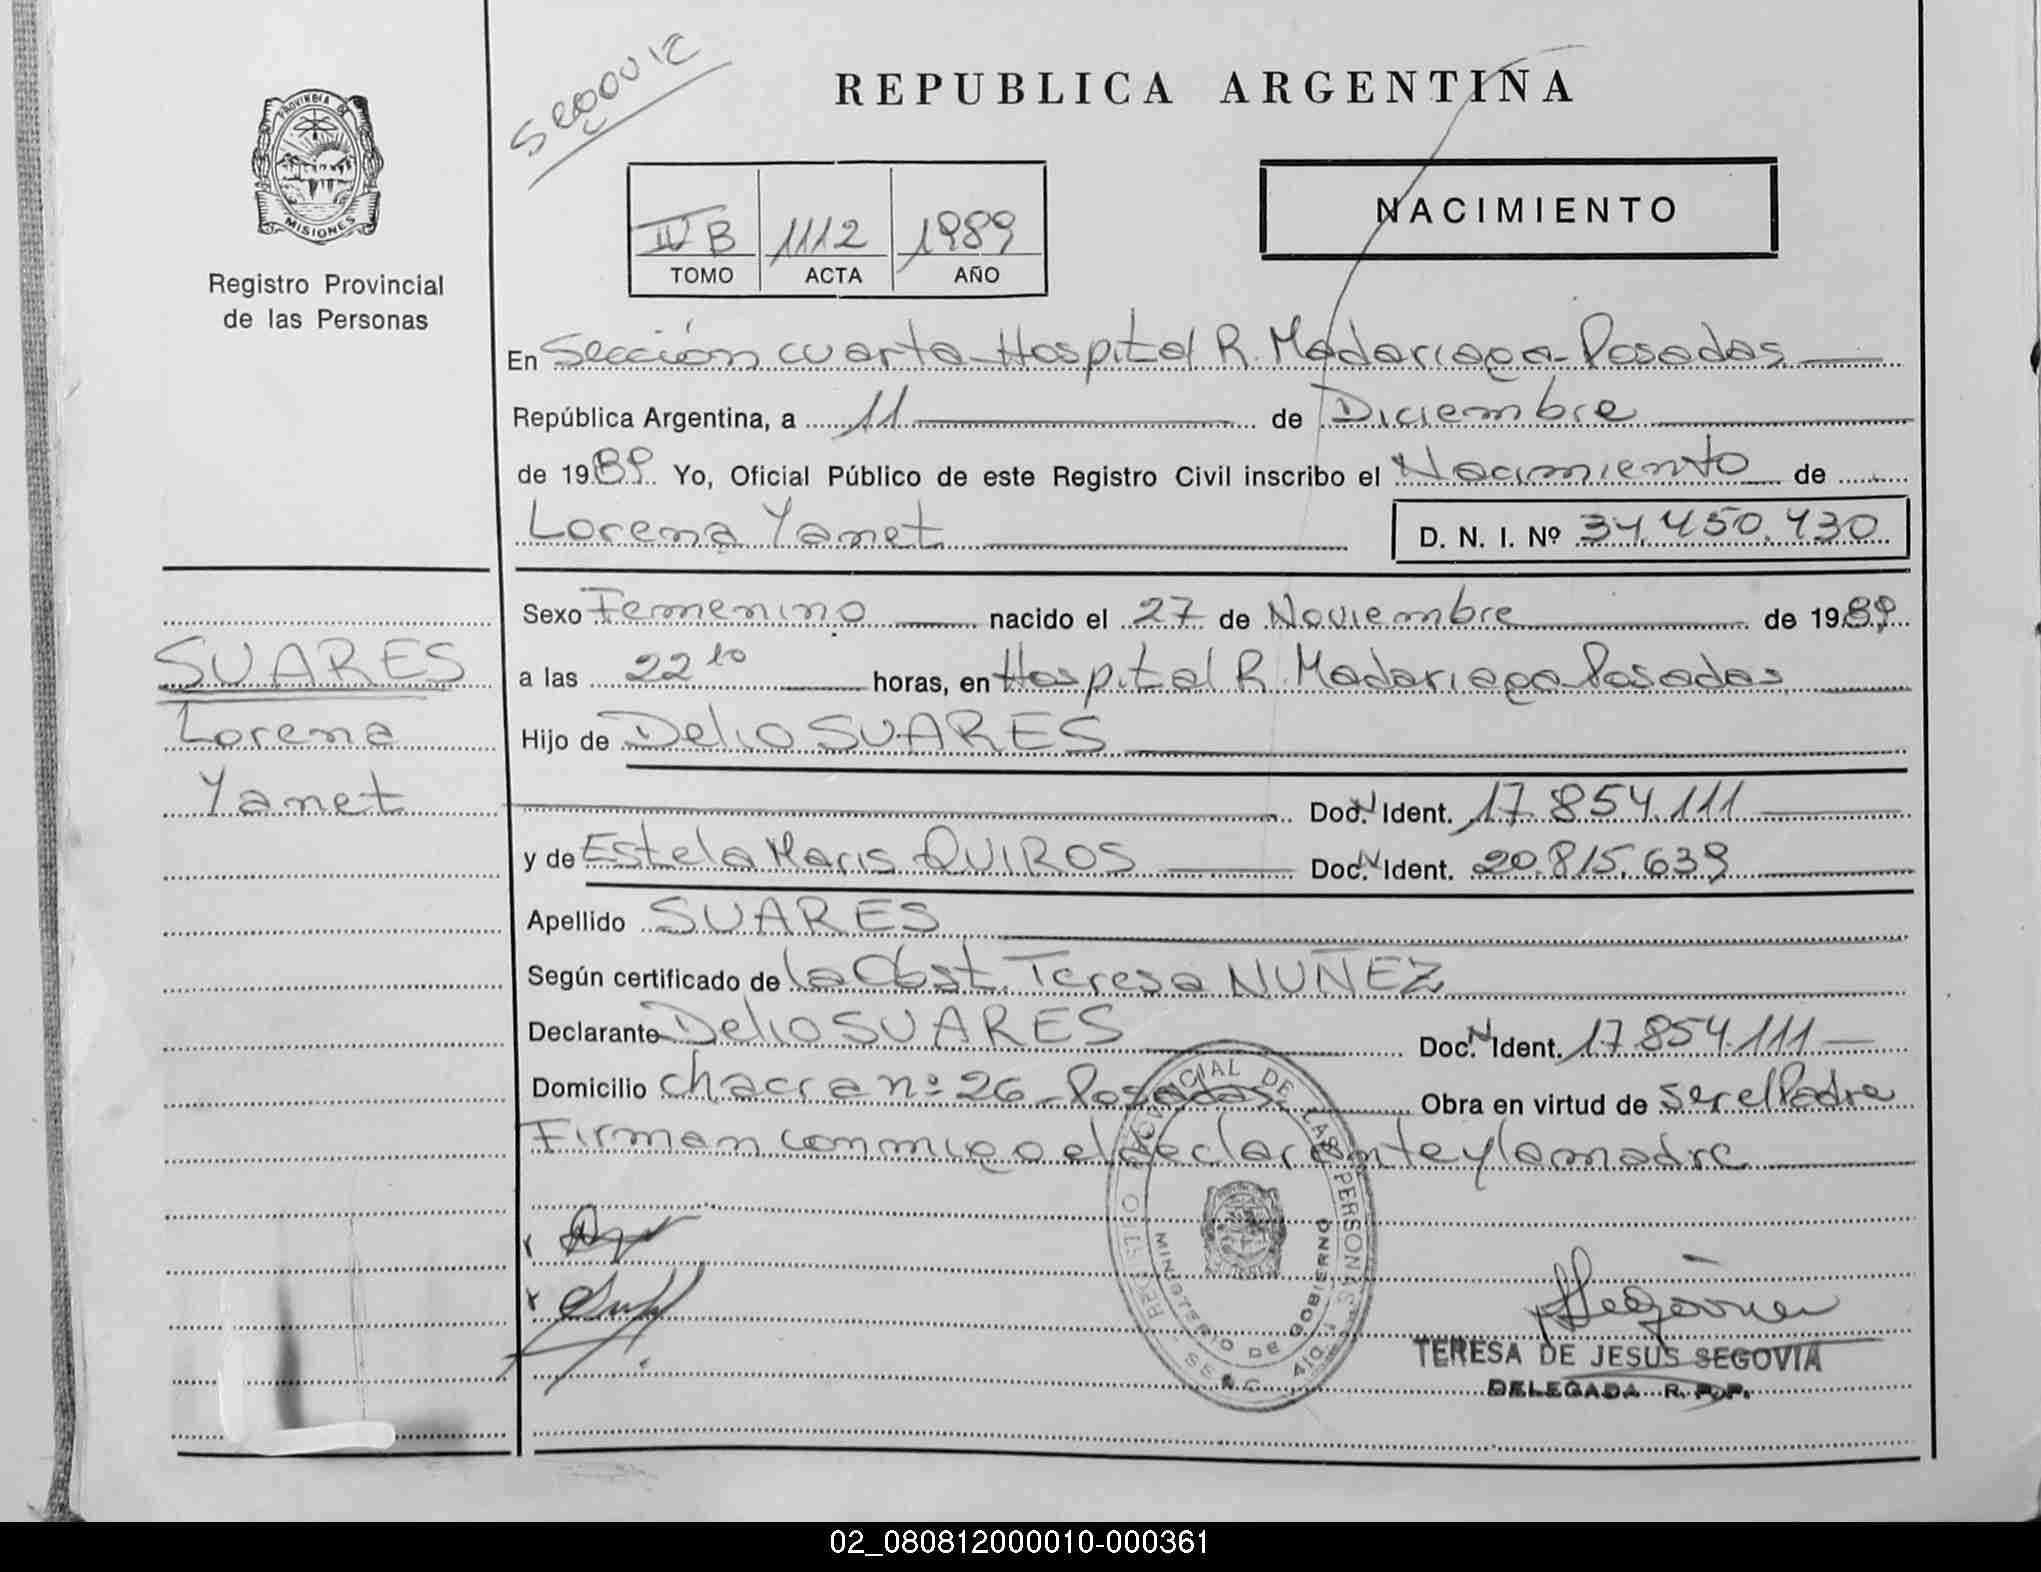 Segovia
REPUBLICA ARGENTINA
PROVINCIA DE
MISIONES
Registro Provincial
de las Personas
IV B 1112 1989
TOMO ACTA AÑO
NACIMIENTO
En Sección cuarta-Hospital R. Madariaga-Posadas
República Argentina, a 11 de Diciembre
de 1989 Yo, Oficial Público de este Registro Civil inscribo el Nacimiento de
Lorena Yanet D. N. I. Nº 34.450.430
Sexo Femenino nacido el 27 de Noviembre de 1989
SUARES
a las 22 10 horas, en Hospital R. Madariaga-Posadas
Lorena
Hijo de Delio SUARES
Yanet
Doc. N Ident. 17.854.111
y de Estela Maris QUIROS Doc. N Ident. 20.815.639
Apellido SUARES
Según certificado de la Obst. Teresa NUÑEZ
Declarante Delio SUARES Doc. N Ident. 17.854.111
Domicilio chacra nº 26-Posadas Obra en virtud de ser el Padre
Firman conmigo el declarante y la madre
REGISTRO PROVINCIAL DE LAS PERSONAS
MINISTERIO DE GOBIERNO
TERESA DE JESUS SEGOVIA
DELEGADA R. P. P.
02_080812000010-000361